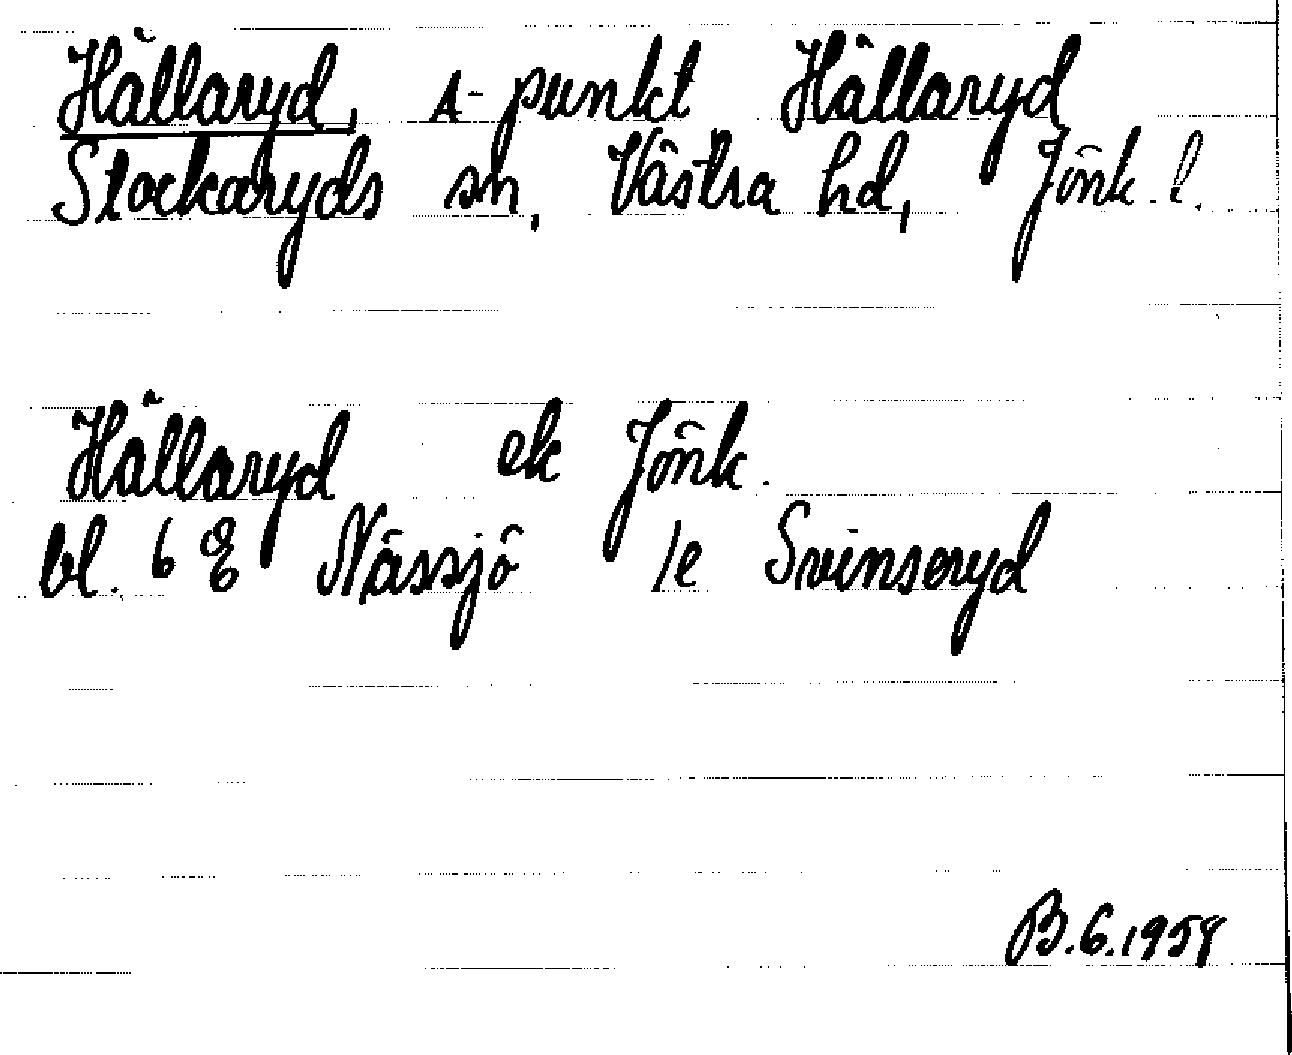 Hällaryd, A-punkt Hällaryd
Stockaryds sn, Västra hd, Jönk. l.
Hällaryd ek Jönk.
bl. 6 E Nässjö 1e Svinseryd
B.G.1958